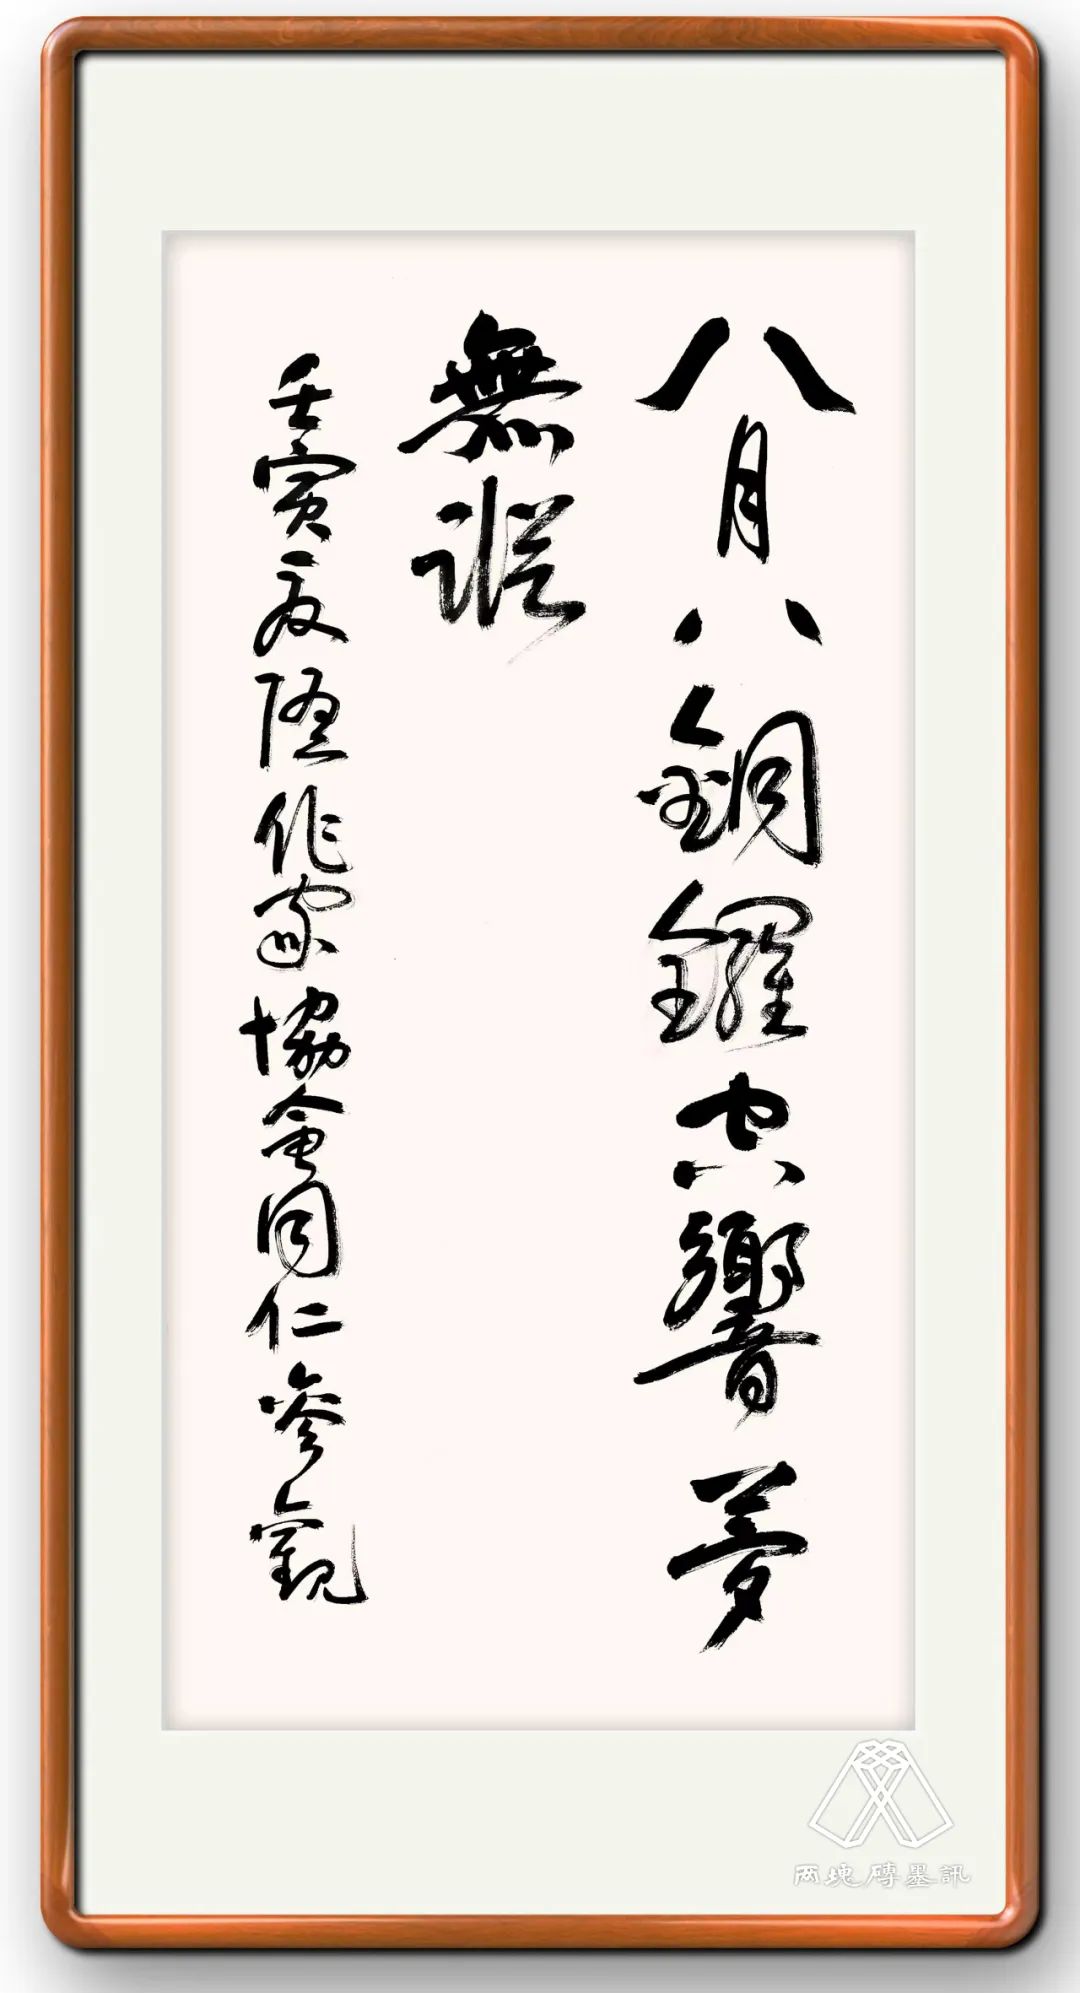 八月八銅鑼空響夢
無蹤
壬寅夏隨作家協會同仁參觀
两塊磚墨訊